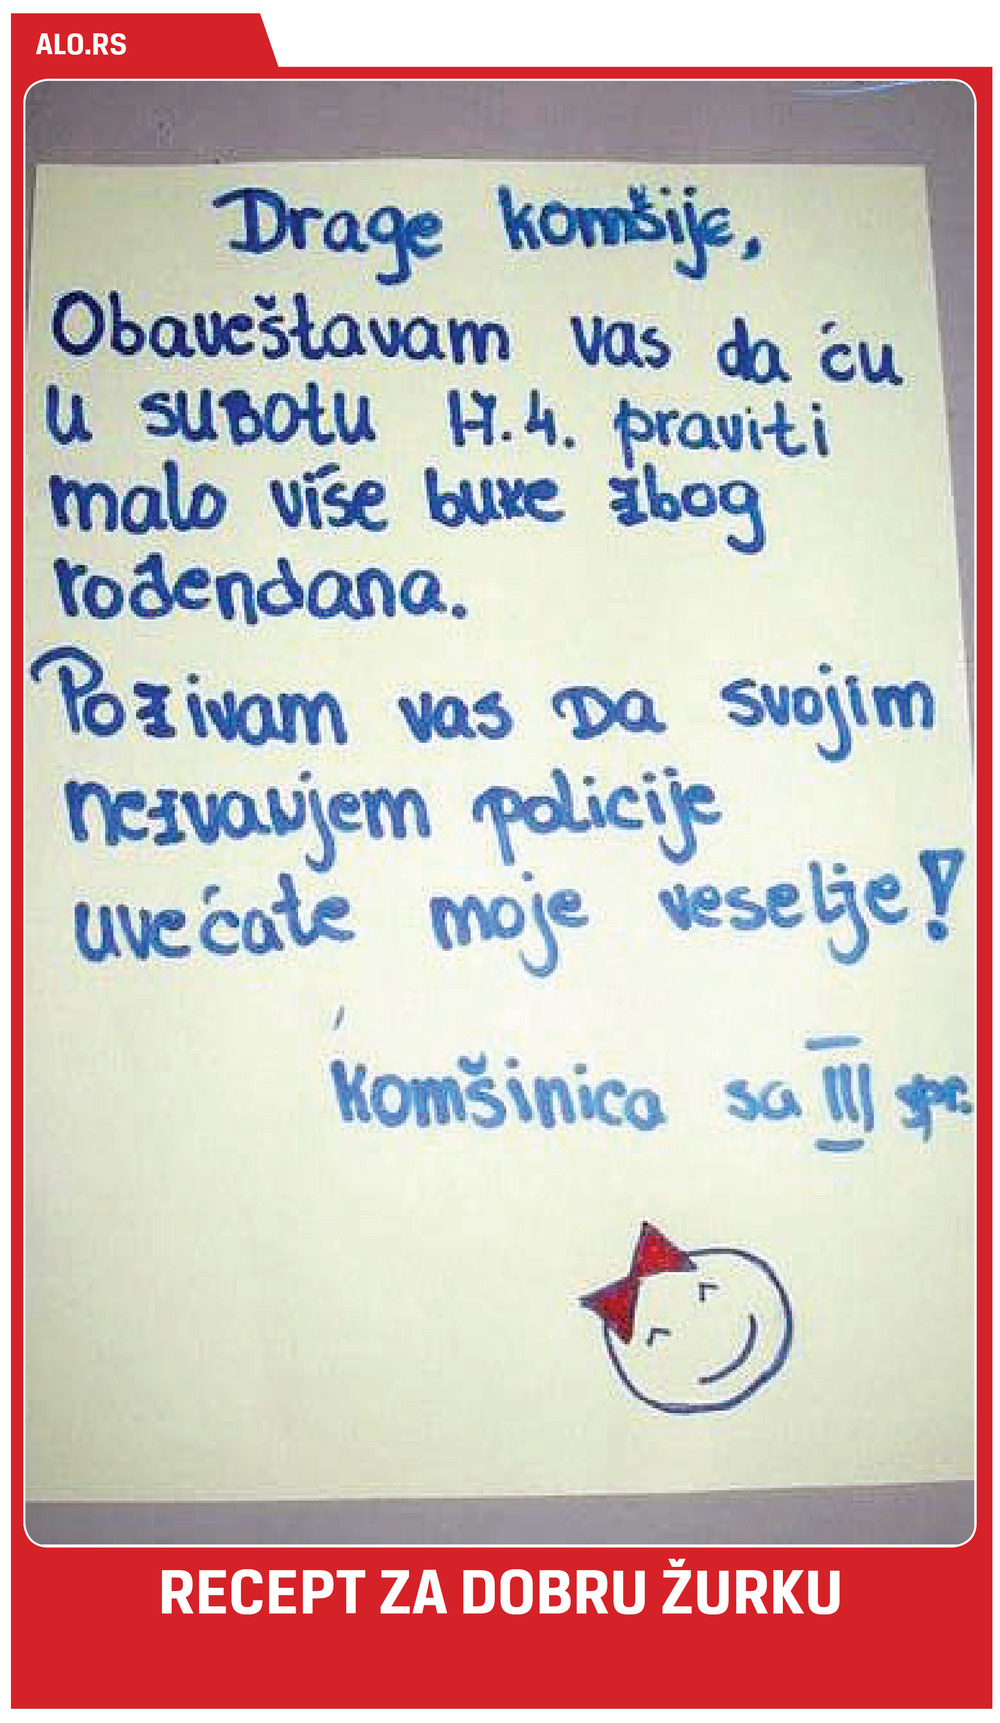 ALO.RS
Drage komšije,
Obaveštavam vas da ću
u subotu 17.4. praviti
malo više buke zbog
rođendana.
Pozivam vas da svojim
nezvanjem policije
uvećate moje veselje!
Komšinica sa III spr.
RECEPT ZA DOBRU ŽURKU